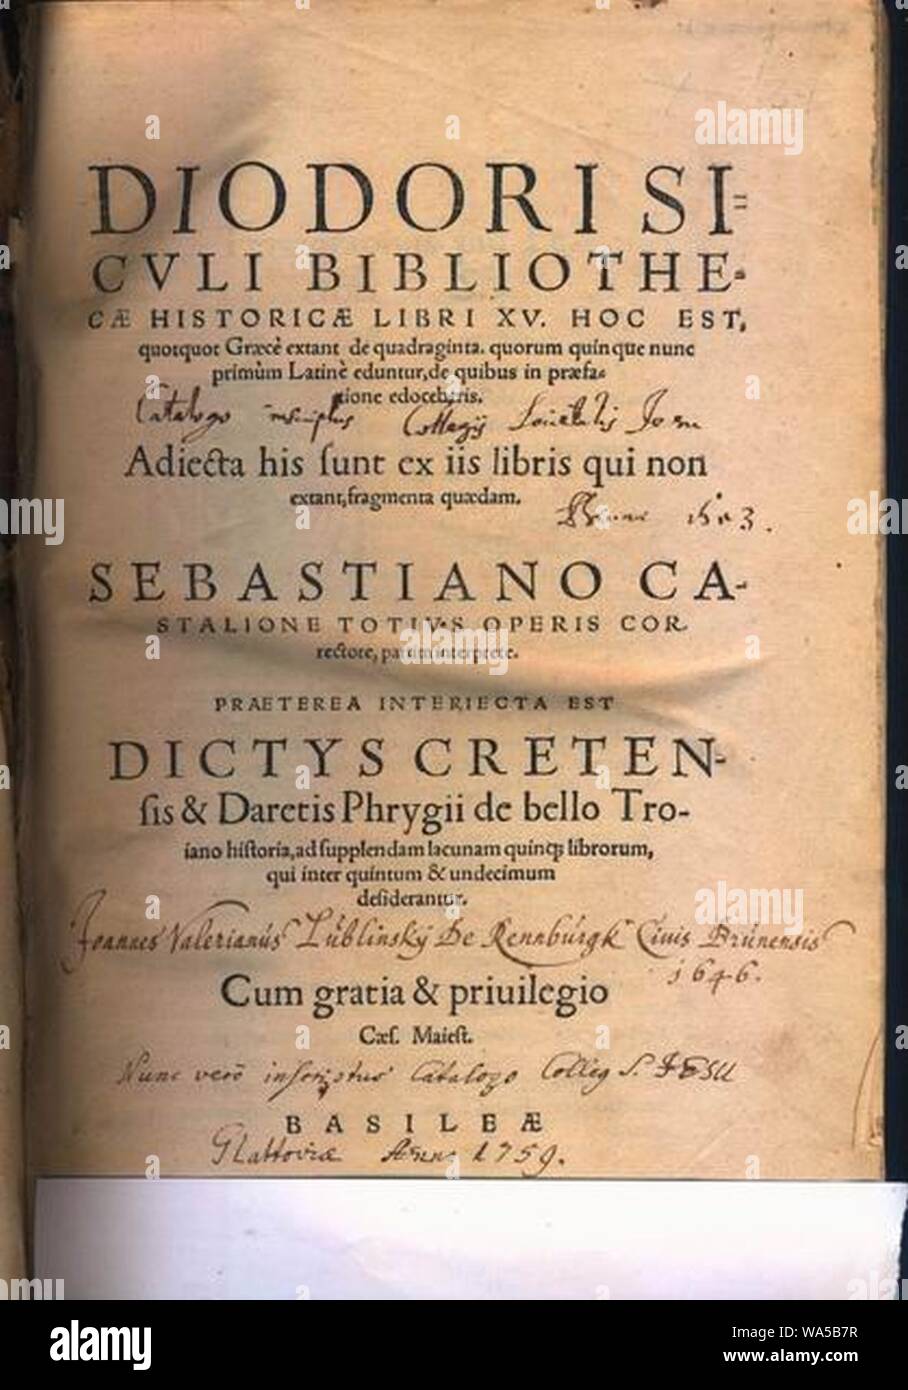 DIODORI SI=
CVLI BIBLIOTHE-
CÆ HISTORICÆ LIBRI XV. HOC EST,
quotquot Græcè extant de quadraginta. quorum quinque nunc
primùm Latinè eduntur, de quibus in præfa-
tione edocebitis.
Catalogo inscriptus Collegij Societatis Jesu
Adiecta his ſunt ex iis libris qui non
extant, fragmenta quædam.
Brunæ 1603.
SEBASTIANO CA-
STALIONE TOTIVS OPERIS COR
rectore, partim interprete.
PRAETEREA INTERIECTA EST
DICTYS CRETEN-
ſis & Daretis Phrygii de bello Tro-
iano hiſtoria, ad ſupplendam lacunam quinq; librorum,
qui inter quintum & undecimum
deſiderantur.
Joannes Valerianús Lúblinskÿ De Rennbúrgk Civis Brúnensis
1646.
Cum gratia & priuilegio
Cæſ. Maieſt.
Nunc verò inscriptus Catalogo Colleg S. JESU
BASILEÆ
Glattoviæ Anno 1759.
alamy
Image ID: WA5B7R
www.alamy.com